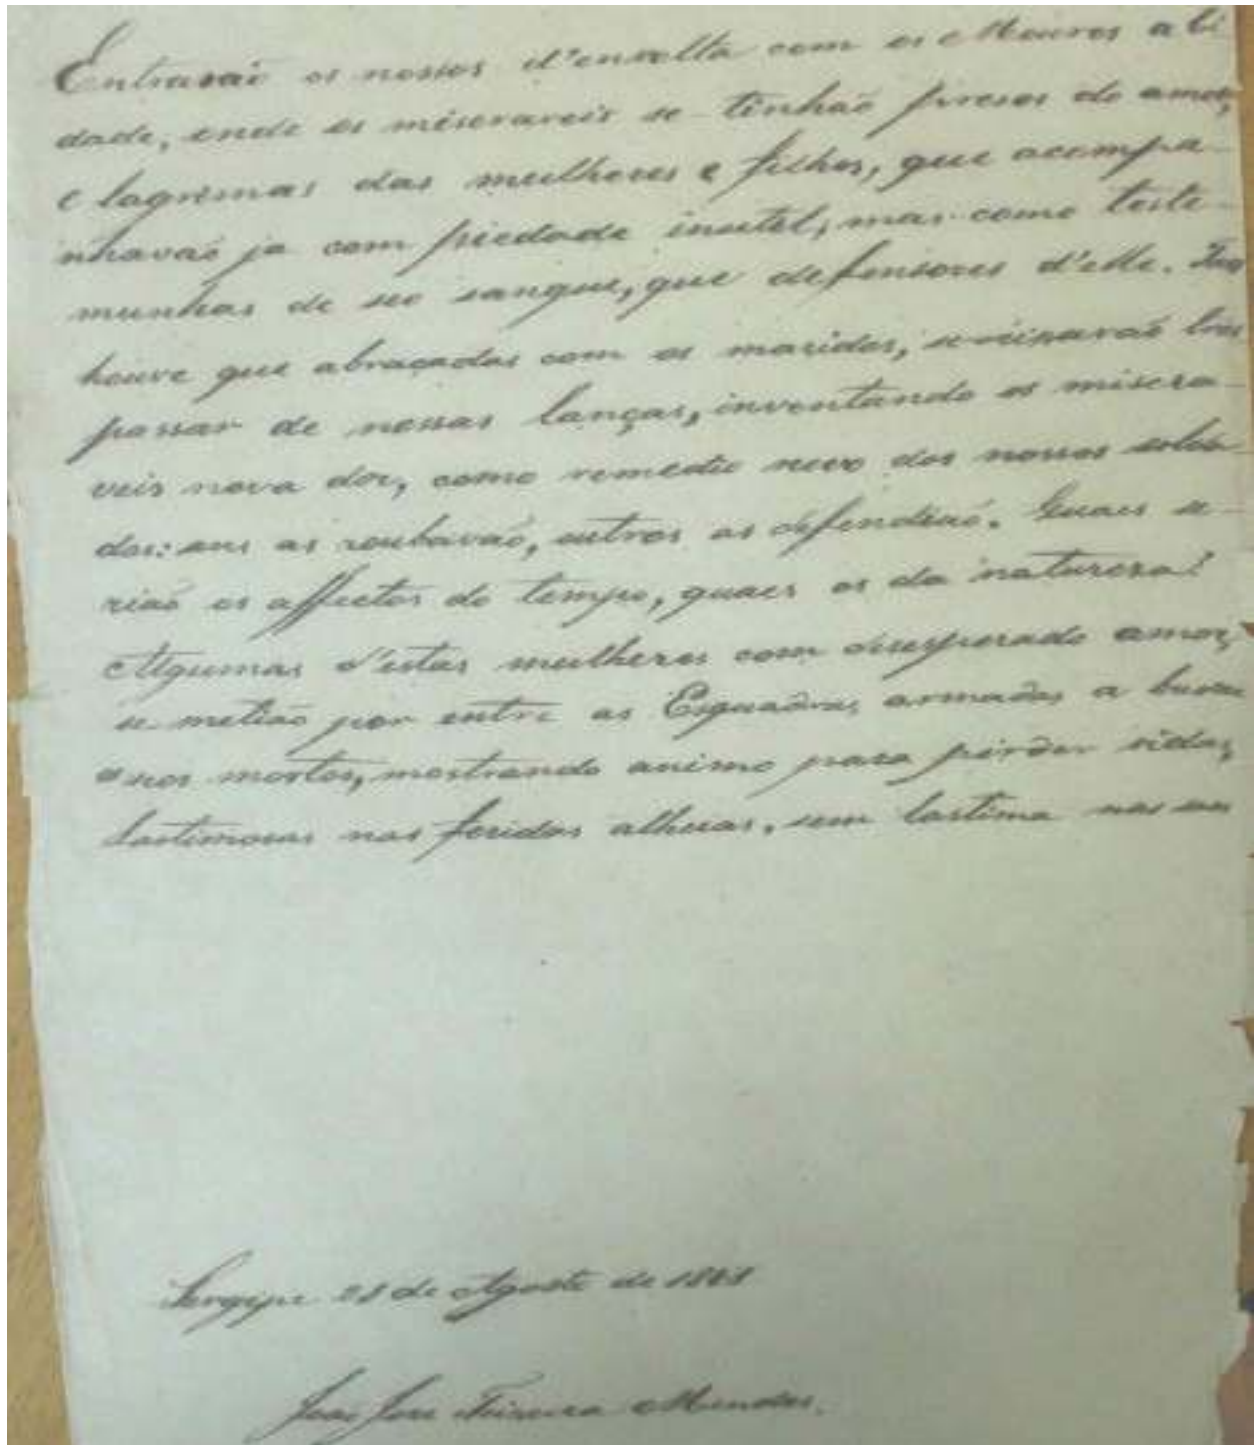 Entrarão os nossos d'envolta com os Mouros a Ci
dade, onde os miseraveis se tinhão presos do amor,
e lagrimas das mulheres e filhos, que acompa-
nhavão ja com piedade inutel, mas como teste-
munhas de seo sangue, que defensores d'elle. Tal
houve que abraçadas com os maridos, se deixavão tres
passar de nossas lanças, inventando os misera-
veis nova dor, como remedio novo dos nossos solda
dos: uns as roubavão, outros as defendião. Quaes se-
rião os affectos do tempo, quaes os da natureza?
Algumas d'estas mulheres com desesperado amor,
se metião por entre as Esquadras armadas a buscar
os mortos, mostrando animo para perder vidas,
lastimosas nas feridas alheias, sem lastima nas suas
Sergipe de Agosto de
João José Teixeira Mendes.